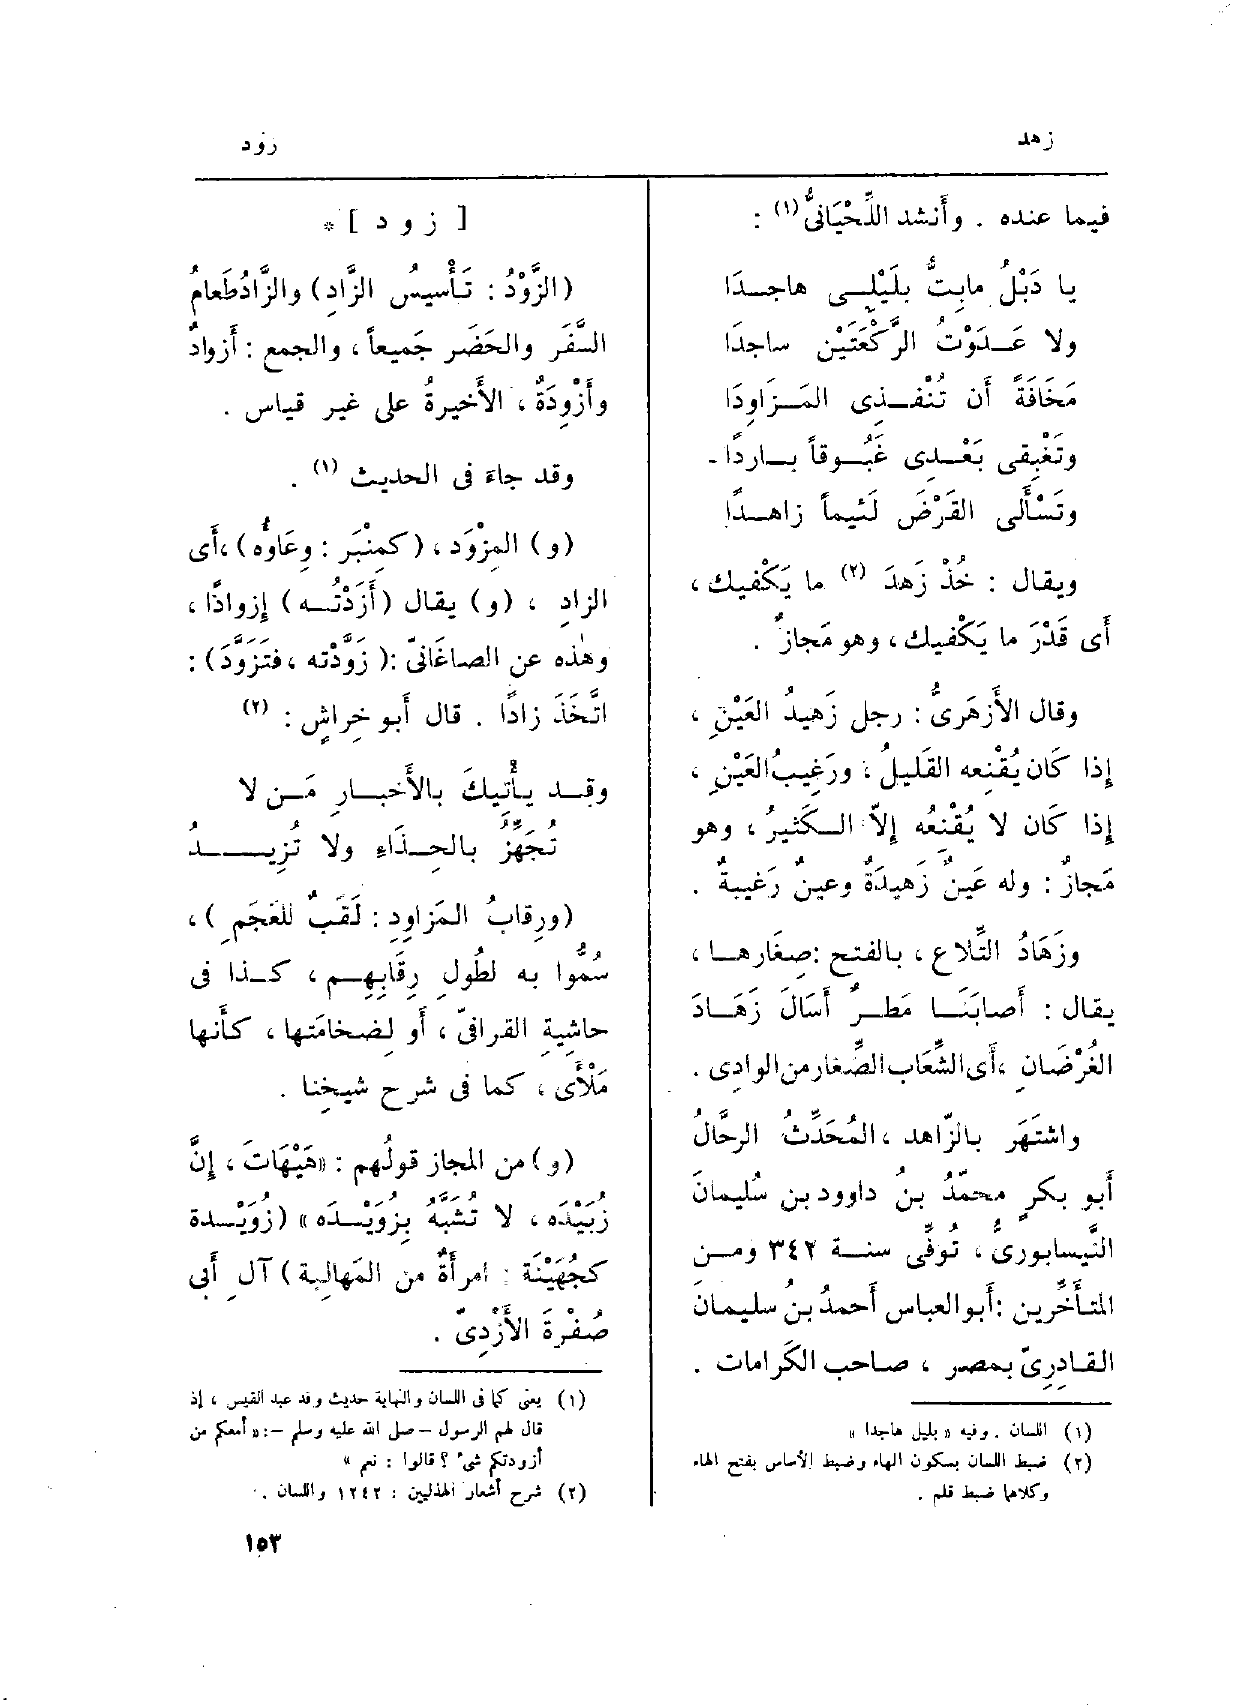 زهد
زود
فيما عنده . وأَنشد اللِّحْيَانىُّ (١) :
يا دَبْلُ مابِتُّ بلَيْلِــى هاجـــدَا
ولا عَــدَوْتُ الرَّكْعَتَيْنِ ساجدَا
مَخَافَةً أَن تُنْفِــذِى المَــزَاوِدَا
وتَغْبِقِى بَعْــدِى غَبُــوقاً بــاردًا
وتَسْأَلى القَرْضَ لَئيماً زاهــدًا
ويقال : خُذْ زَهدَ (٢) ما يَكْفيك ،
أَى قَدْرَ ما يَكْفيك ، وهو مَجازٌ .
وقال الأَزهَرىُّ : رجل زَهيدُ العَيْنِ ،
إِذا كَان يُقْنِعه القَليلُ ، ورَغِيبُ العَيْنِ ،
إِذا كَان لا يُقْنِعُه إِلاّ الــكَثيرُ ، وهو
مَجازٌ : وله عَينٌ زَهيدَةٌ وعينٌ رَغيبةٌ .
وزَهَادُ التِّلاع ، بالفتح : صِغَارهــا ،
يقال : أَصابَنَــا مَطــرٌ أَسَالَ زَهَــادَ
الغُرْضَانِ ، أَى الشِّعَاب الصِّغار من الوادِى .
واشتَهَر بالزّاهد ، المُحَدِّثُ الرحَّالُ
أَبو بكرٍ محمّدُ بنُ داوود بن سُليمانَ
النَّيسابورىُّ ، تُوفِّى سنــة ٣٤٢ ومــن
المتأَخِّرين : أَبو العباس أَحمدُ بنُ سليمانَ
القادِرِىّ بمصر ، صاحب الكَرامات .
(١) اللسان . وفيه « بليل هاجدا »
(٢) ضبط اللسان بسكون الهاء وضبط الأساس بفتح الهاء
وكلاهما ضبط قلم .
[ ز و د ] *
(الزَّوْدُ : تَأْسيسُ الزَّادِ) والزَّادُ طَعامُ
السَّفَر والحَضَر جَميعاً ، والجمع : أَزوادٌ
وأَزْوِدَةٌ ، الأَخيرةُ على غير قياس .
وقد جاءَ فى الحديث (١) .
(و) المِزْوَد ، (كمِنْبَر : وِعَاؤُه) ، أَى
الزادِ ، (و) يقال (أَزَدْتُــه) إِزوادًا ،
وهٰذه عن الصاغَانىّ : (زَوَّدْته ، فتَزَوَّدَ) :
اتَّخَذَ زادًا . قال أَبو خِراشٍ : (٢)
وقــد يــأْتِيكَ بالأَخبــارِ مَــن لا
تُجَهِّزُ بالحِــذَاءِ ولا تُزِيــــدُ
(ورِقابُ المَزاوِدِ : لَقَبٌ للعَجَمِ ) ،
سُمُّوا به لطُولِ رِقَابِهِــم ، كــذا فى
حاشِيةِ القرافىّ ، أَو لضخامَتها ، كأَنها
مَلْأَى ، كما فى شرح شيخِنا .
(و) من المجاز قولُهم : «هَيْهَاتَ ، إِنَّ
زُبَيْدَه ، لا تُشَبَّهُ بزُوَيْــدَه » (زُوَيْــدة
كجُهَيْنَة : امرأَةٌ من المَهالِبة ) آلِ أَبى
صُفْرَةَ الأَزْدِىّ .
(١) يعنى كما فى اللسان والنهاية حديث وفد عبد القيس ، إذ
قال لهم الرسول – صلى الله عليه وسلم – : « أمعكم من
أزودتكم شىء ؟ قالوا : نعم »
(٢) شرح أشعار الهذليين : ١٢٤٢ واللسان .
١٥٣